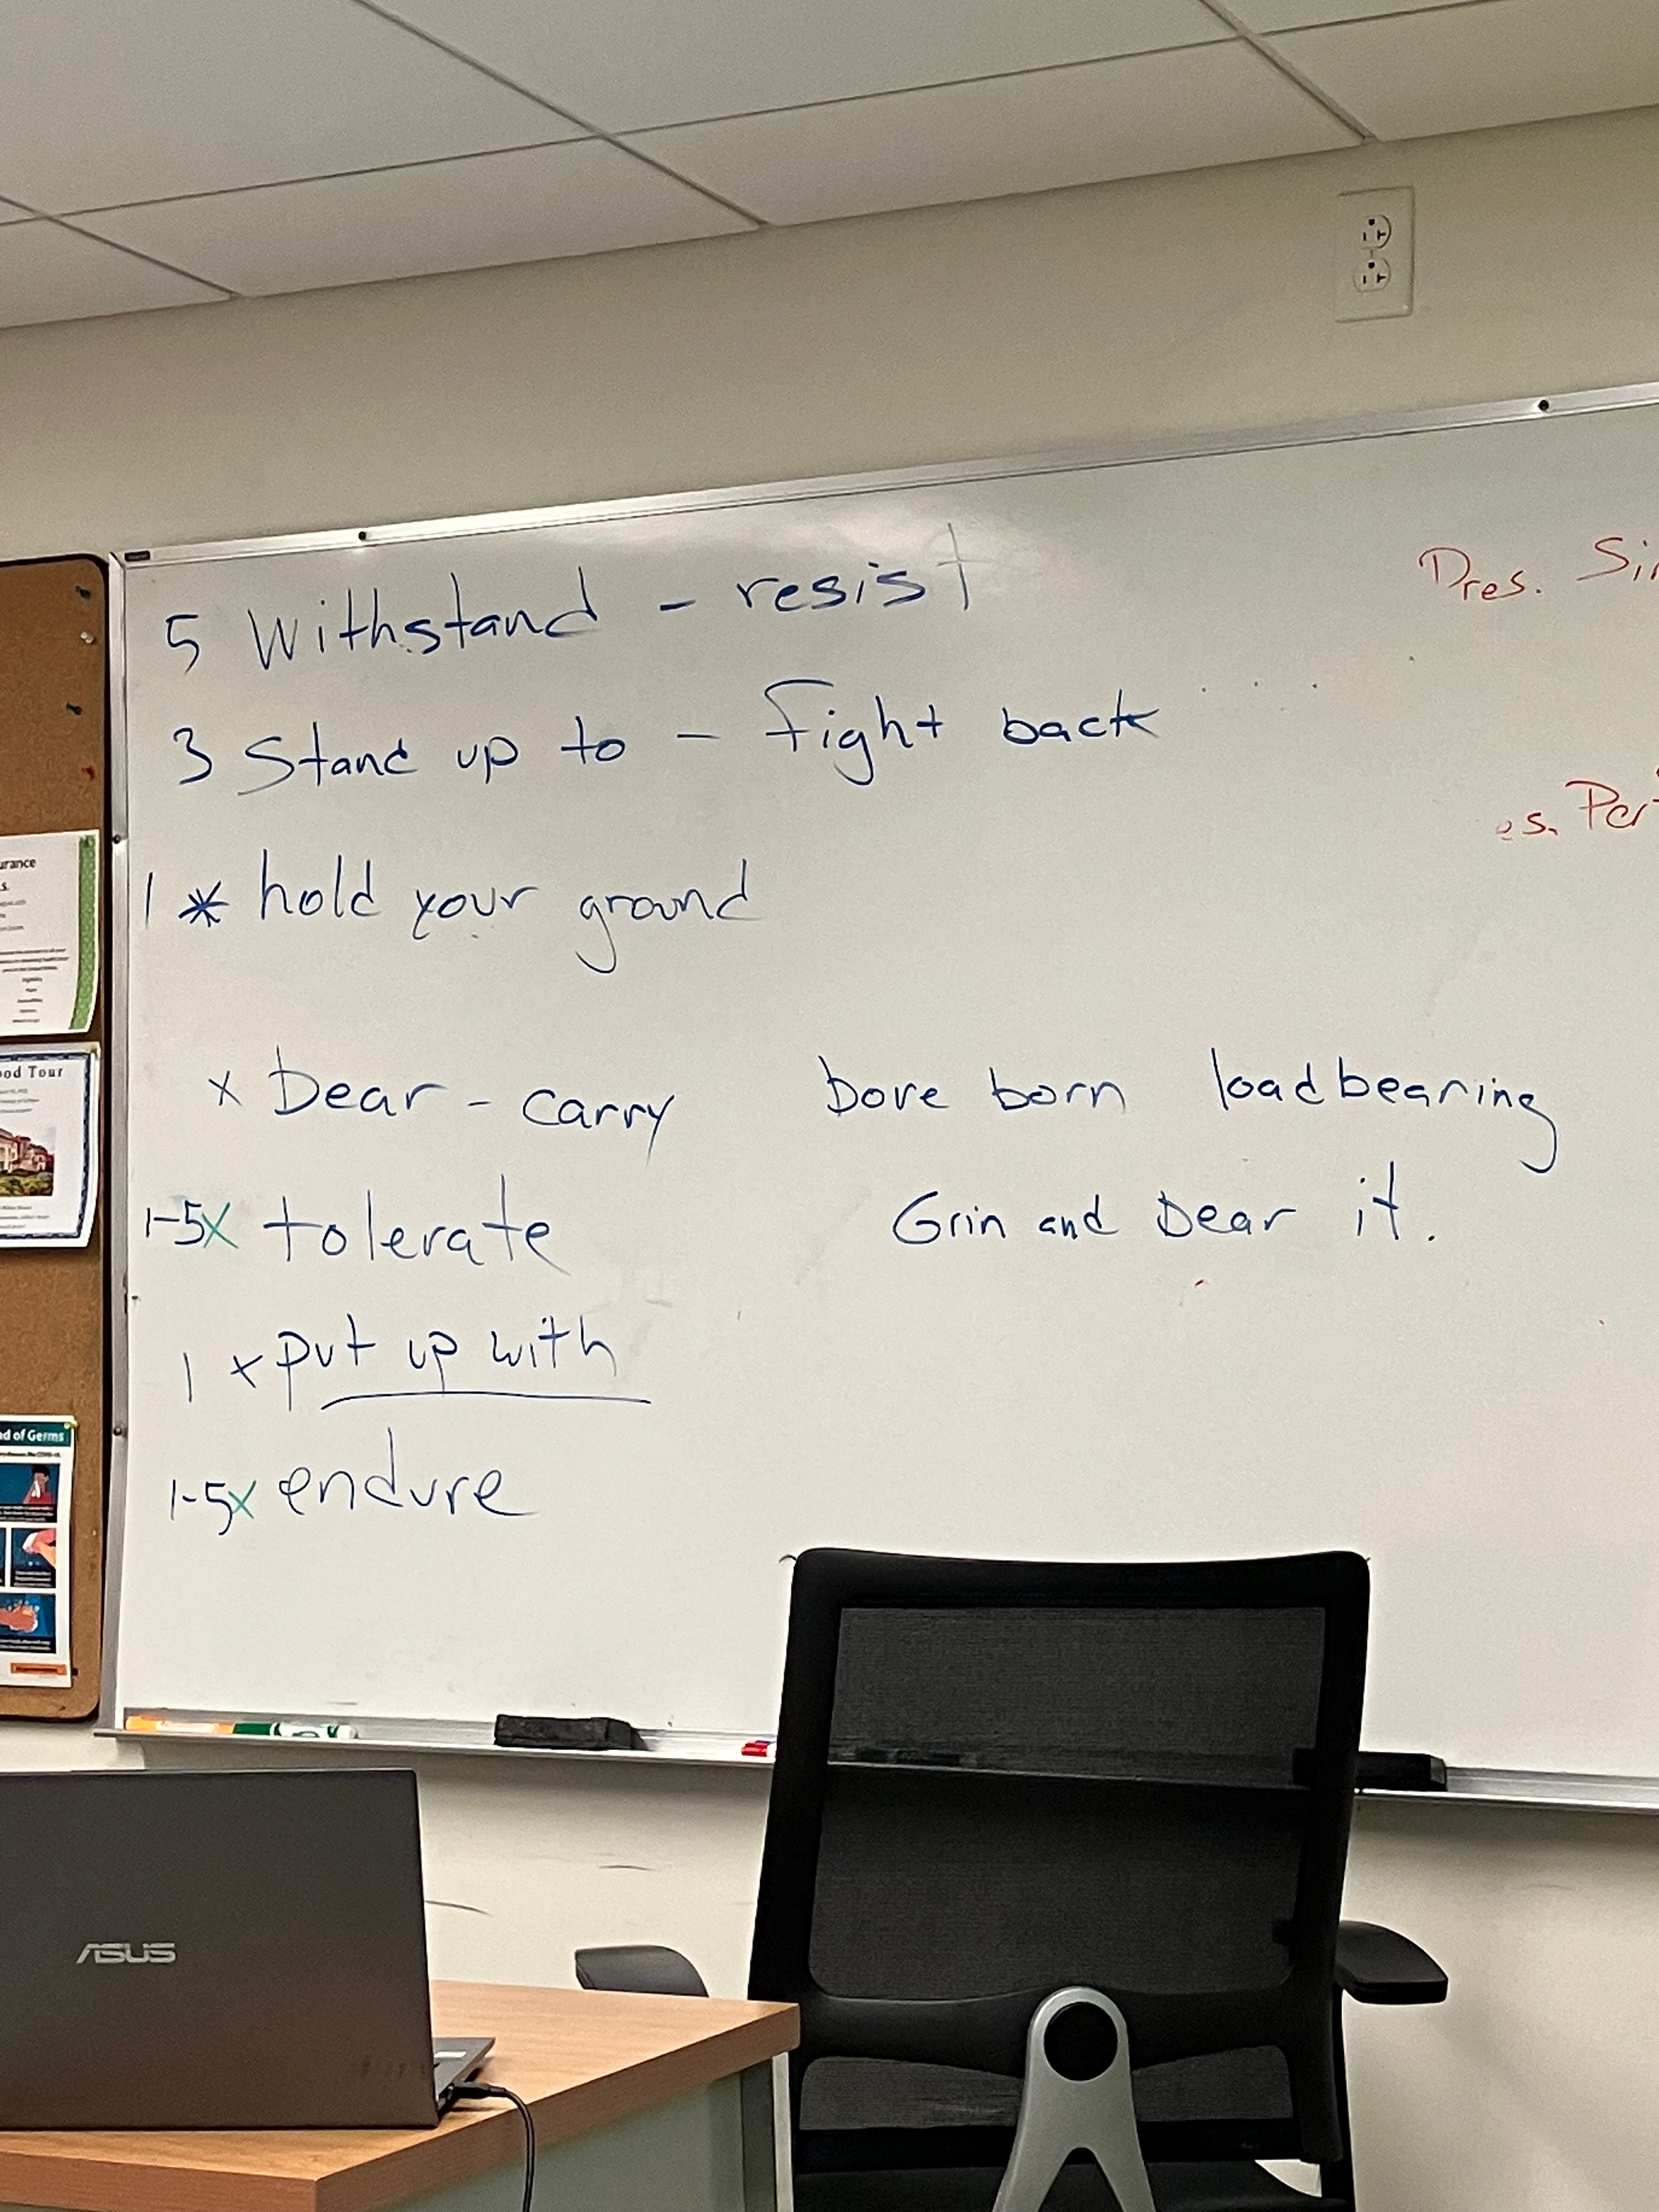 5 Withstand - resist
3 Stand up to - fight back
1 * hold your ground
x bear - carry bore born loadbearing
1-5x tolerate Grin and bear it.
1 x put up with
1-5x endure
Pres.
ood Tour
ad of Germs
ASUS